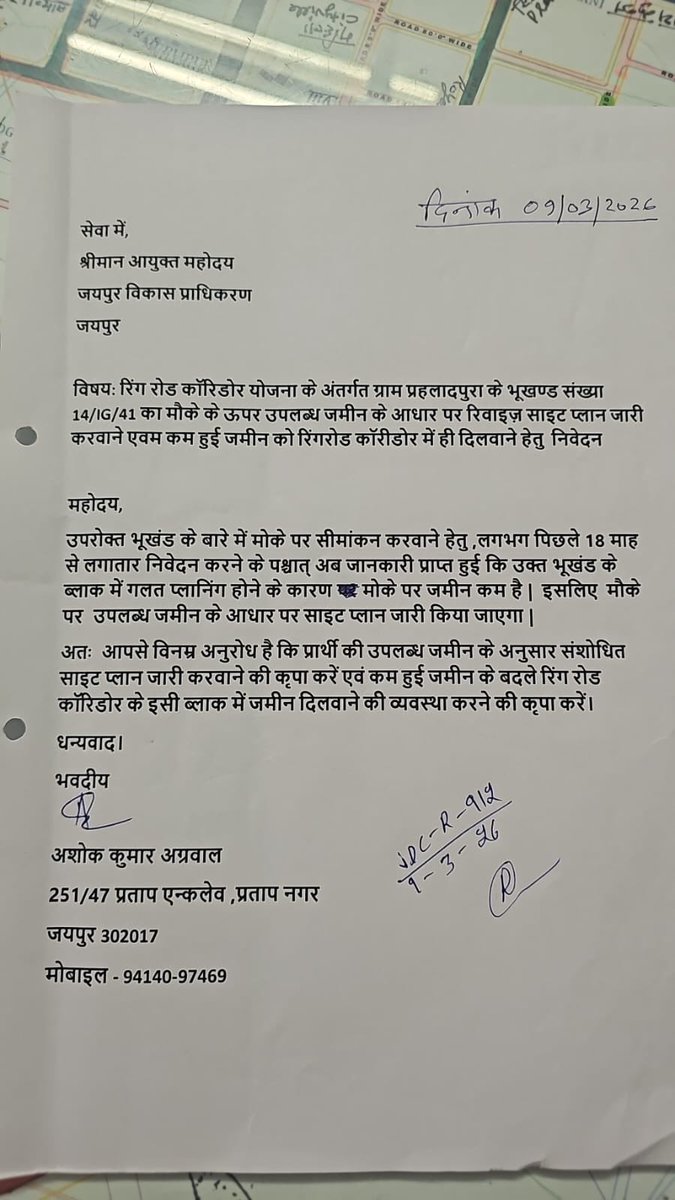 ROAD 60'0" WIDE
दिनांक 09/03/2026
सेवा में,
श्रीमान आयुक्त महोदय
जयपुर विकास प्राधिकरण
जयपुर
विषय: रिंग रोड कॉरिडोर योजना के अंतर्गत ग्राम प्रहलादपुरा के भूखण्ड संख्या
14/IG/41 का मौके के ऊपर उपलब्ध जमीन के आधार पर रिवाइज़ साइट प्लान जारी
करवाने एवम कम हुई जमीन को रिंगरोड कॉरीडोर में ही दिलवाने हेतु निवेदन
महोदय,
उपरोक्त भूखंड के बारे में मोके पर सीमांकन करवाने हेतु ,लगभग पिछले 18 माह
से लगातार निवेदन करने के पश्चात् अब जानकारी प्राप्त हुई कि उक्त भूखंड के
ब्लाक में गलत प्लानिंग होने के कारण मोके पर जमीन कम है | इसलिए मौके
पर उपलब्ध जमीन के आधार पर साइट प्लान जारी किया जाएगा |
अतः आपसे विनम्र अनुरोध है कि प्रार्थी की उपलब्ध जमीन के अनुसार संशोधित
साइट प्लान जारी करवाने की कृपा करें एवं कम हुई जमीन के बदले रिंग रोड
कॉरिडोर के इसी ब्लाक में जमीन दिलवाने की व्यवस्था करने की कृपा करें।
धन्यवाद।
भवदीय
अशोक कुमार अग्रवाल
251/47 प्रताप एन्कलेव ,प्रताप नगर
जयपुर 302017
मोबाइल - 94140-97469
JDC-R-912
9-3-26